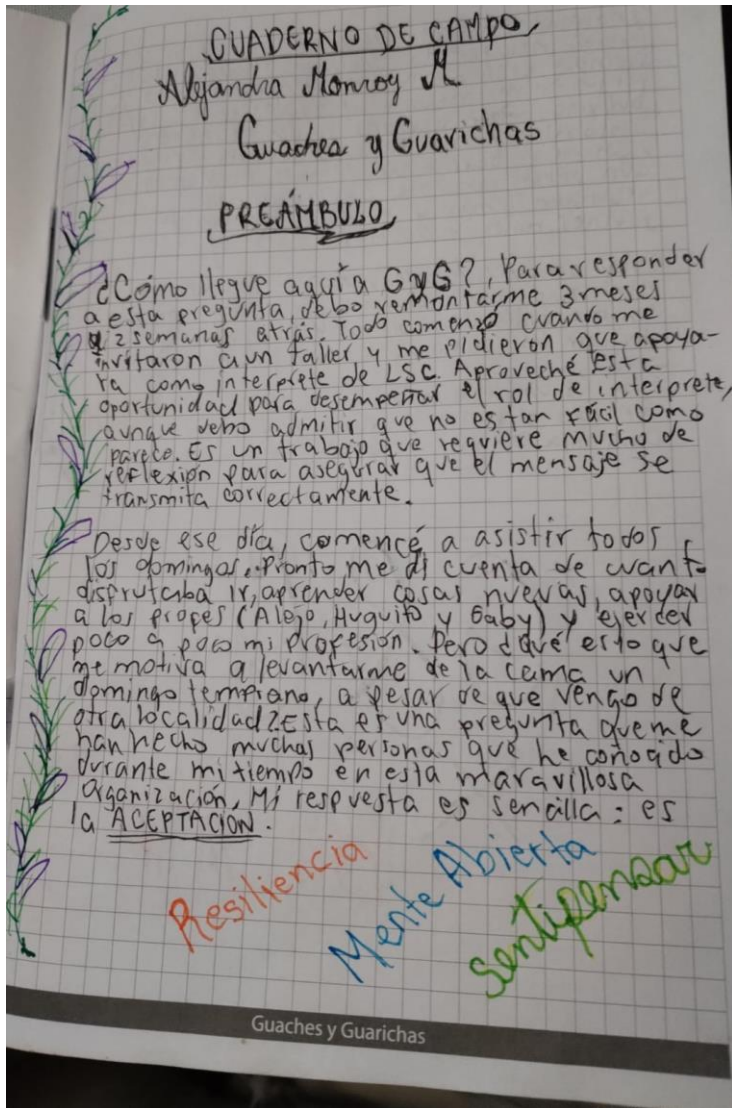 CUADERNO DE CAMPO
Alejandra Monroy M
Guaches y Guarichas
PREÁMBULO
¿Cómo llegue aquí a GyG?, Para responder
a esta pregunta, debo remontarme 3 meses
y 2 semanas atrás. Todo comenzó cuando me
invitaron a un taller y me pidieron que apoya-
ra como interprete de LSC. Aproveché esta
oportunidad para desempeñar el rol de interprete,
aunque debo admitir que no es tan fácil como
parece. Es un trabajo que requiere mucho de
reflexión para asegurar que el mensaje se
transmita correctamente.
Desde ese día, comencé a asistir todos
los domingos. Pronto me di cuenta de cuanto
disfrutaba ir, aprender cosas nuevas, apoyar
a los profes (Alejo, Huguito y Gaby) y ejercer
poco a poco mi profesión. Pero ¿qué es lo que
me motiva a levantarme de la cama un
domingo temprano, a pesar de que vengo de
otra localidad? Esta es una pregunta que me
han hecho muchas personas que he conocido
durante mi tiempo en esta maravillosa
organización, Mi respuesta es sencilla: es
la ACEPTACIÓN.
Resiliencia
Mente Abierta
Sentipensar
Guaches y Guarichas